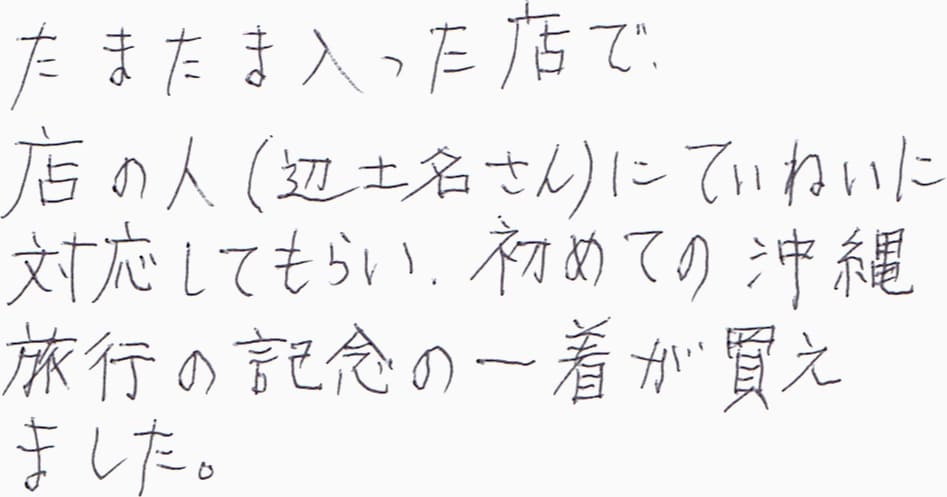 たまたま入った店で、
店の人(辺土名さん)にていねいに
対応してもらい、初めての沖縄
旅行の記念の一着が買え
ました。